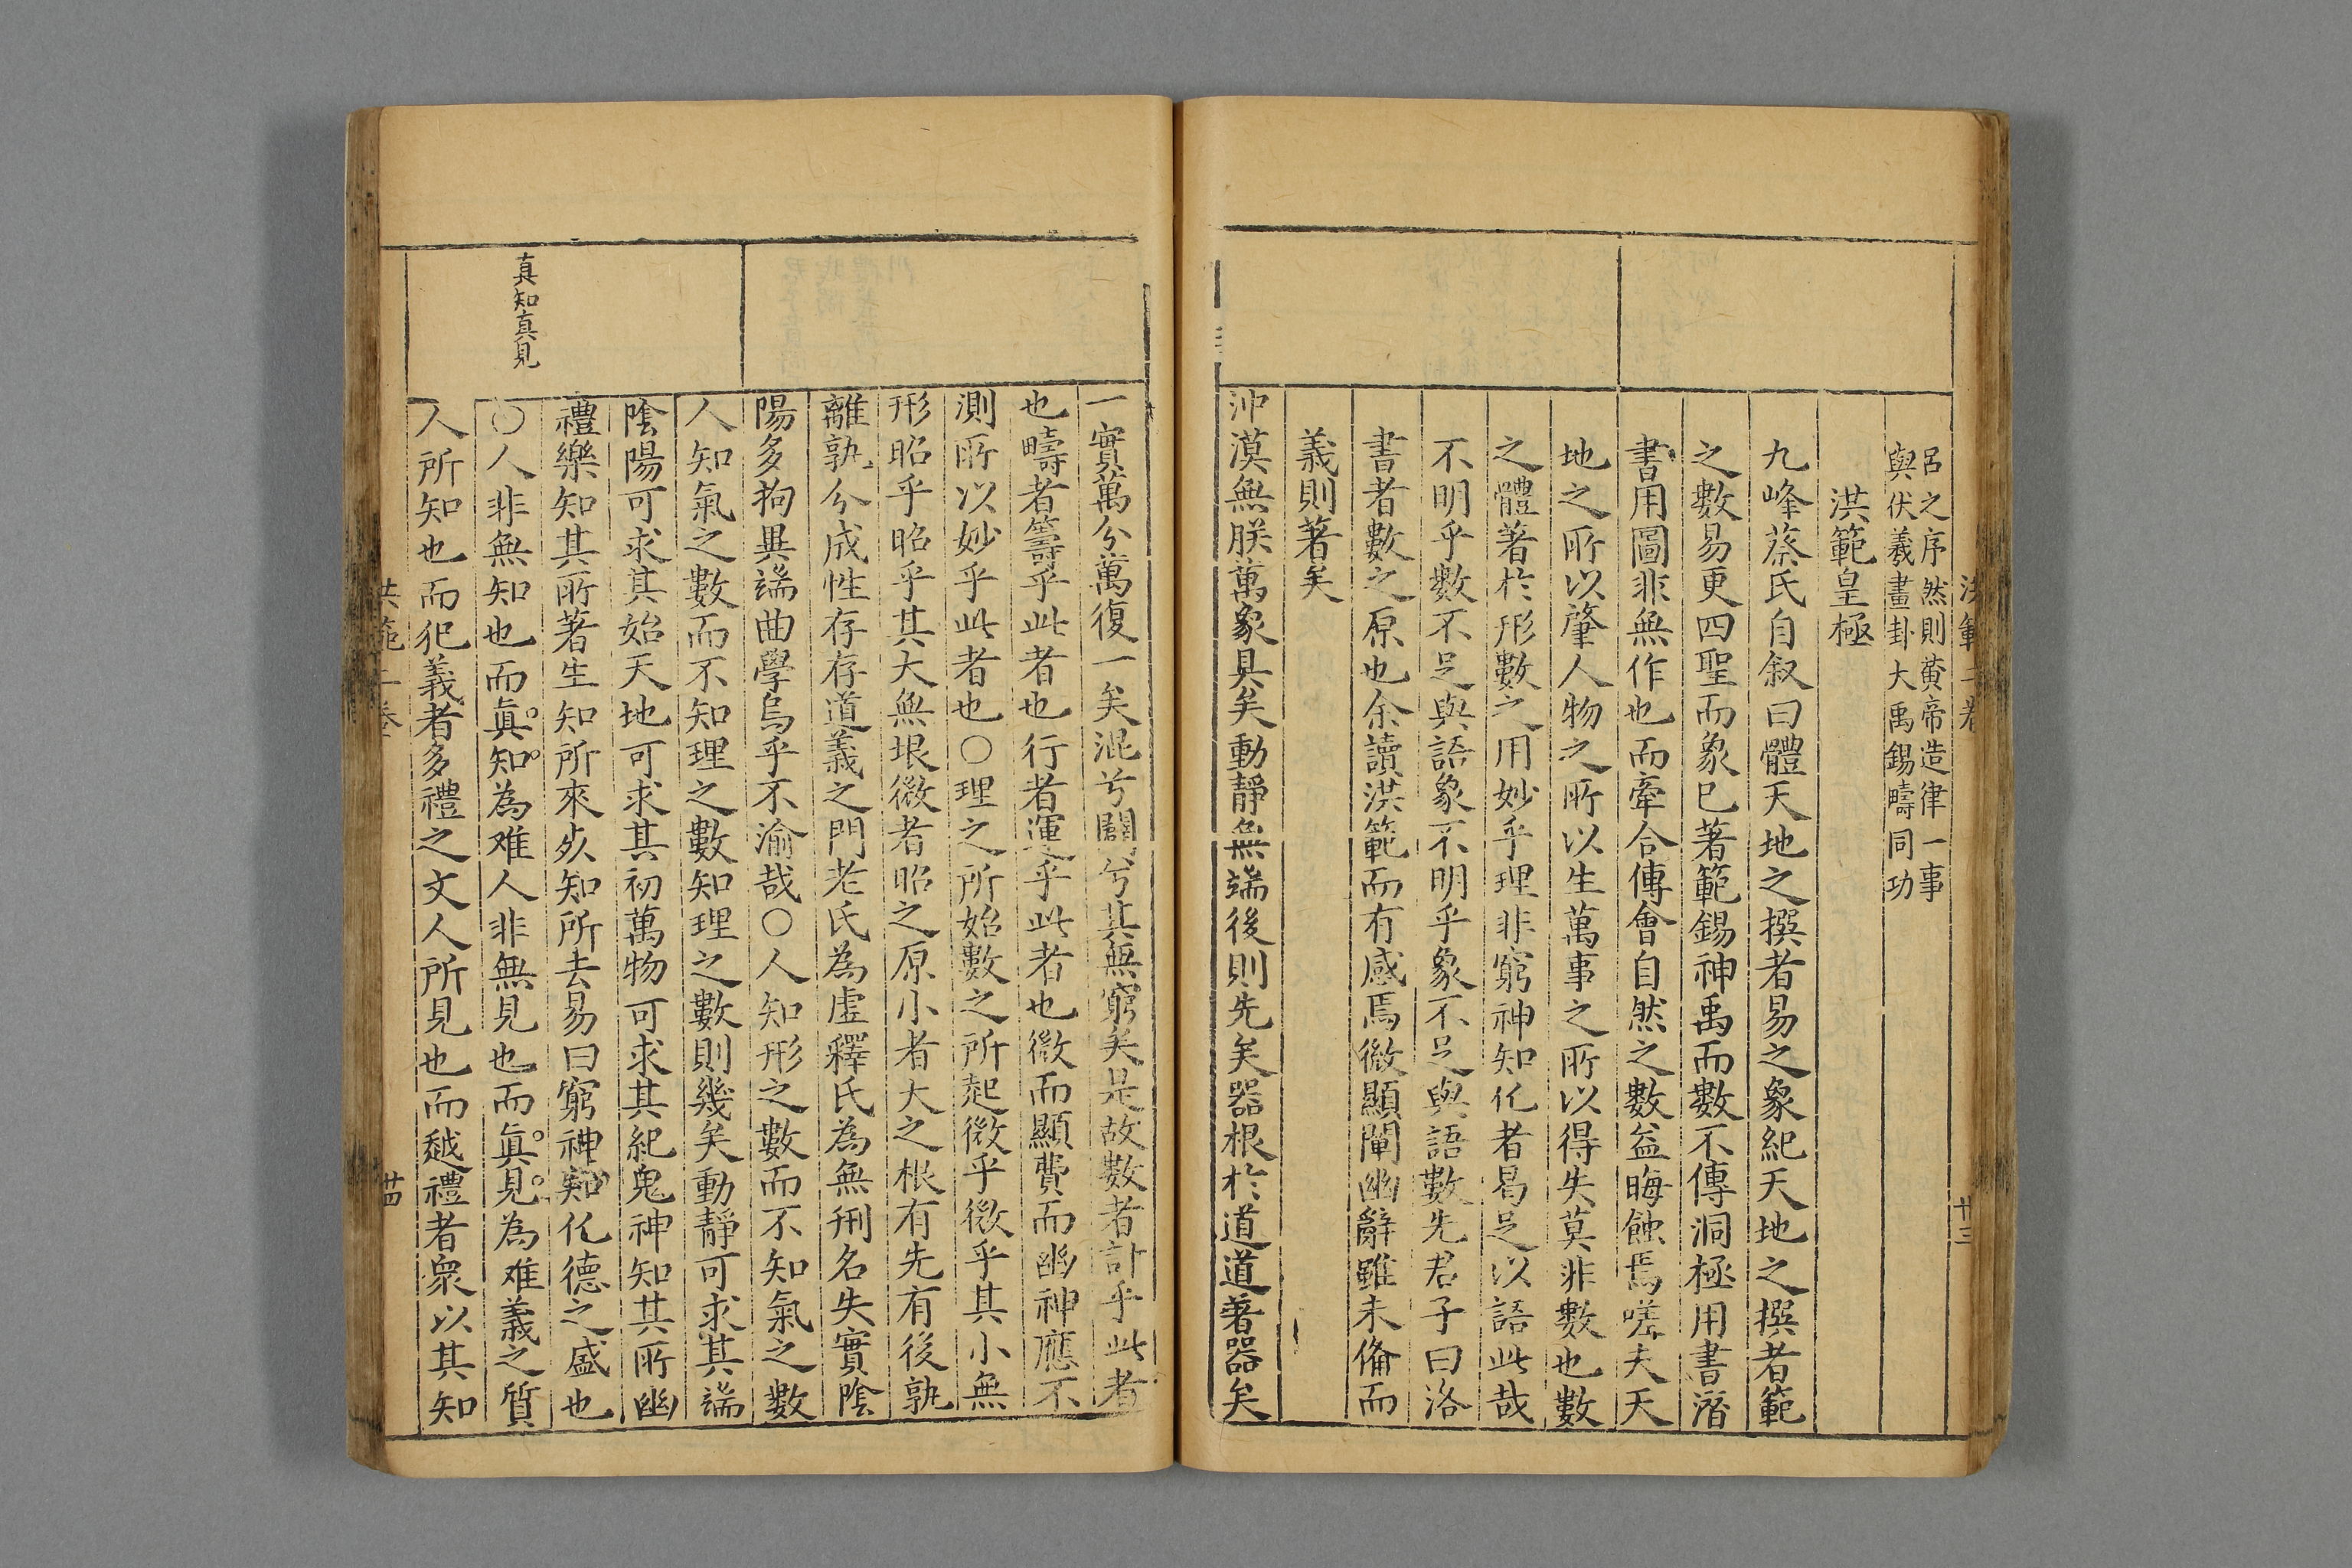 洪範二卷
廿三
呂之序然則黄帝造律一事
與伏羲畫卦大禹錫疇同功
洪範皇極
九峰蔡氏自叙曰體天地之撰者易之象紀天地之撰者範
之數易更四聖而象已著範錫神禹而數不傳洞極用書潛
書用圖非無作也而牽合傳會自然之數益晦蝕焉嗟夫天
地之所以肇人物之所以生萬事之所以得失莫非數也數
之體著於形數之用妙乎理非窮神知化者曷足以語此哉
不明乎數不足與語象不明乎象不足與語數先君子曰洛
書者數之原也余讀洪範而有感焉微顯闡幽辭雖未備而
義則著矣
沖漠無朕萬象具矣動靜無端後則先矣器根於道道著器矣
一實萬分萬復一矣混兮闢兮其無窮矣是故數者計乎此者
也疇者籌乎此者也行者運乎此者也微而顯費而幽神應不
測所以妙乎此者也○理之所始數之所起微乎微乎其小無
形昭乎昭乎其大無垠微者昭之原小者大之根有先有後孰
離孰分成性存存道義之門老氏為虛釋氏為無刑名失實陰
陽多拘異端曲學烏乎不渝哉○人知形之數而不知氣之數
人知氣之數而不知理之數知理之數則幾矣動靜可求其端
陰陽可求其始天地可求其初萬物可求其紀鬼神知其所幽
禮樂知其所著生知所來死知所去易曰窮神知化德之盛也
真知真見
○人非無知也而真知為难人非無見也而真見為难義之質
人所知也而犯義者多禮之文人所見也而越禮者衆以其知
洪範二卷
廿四